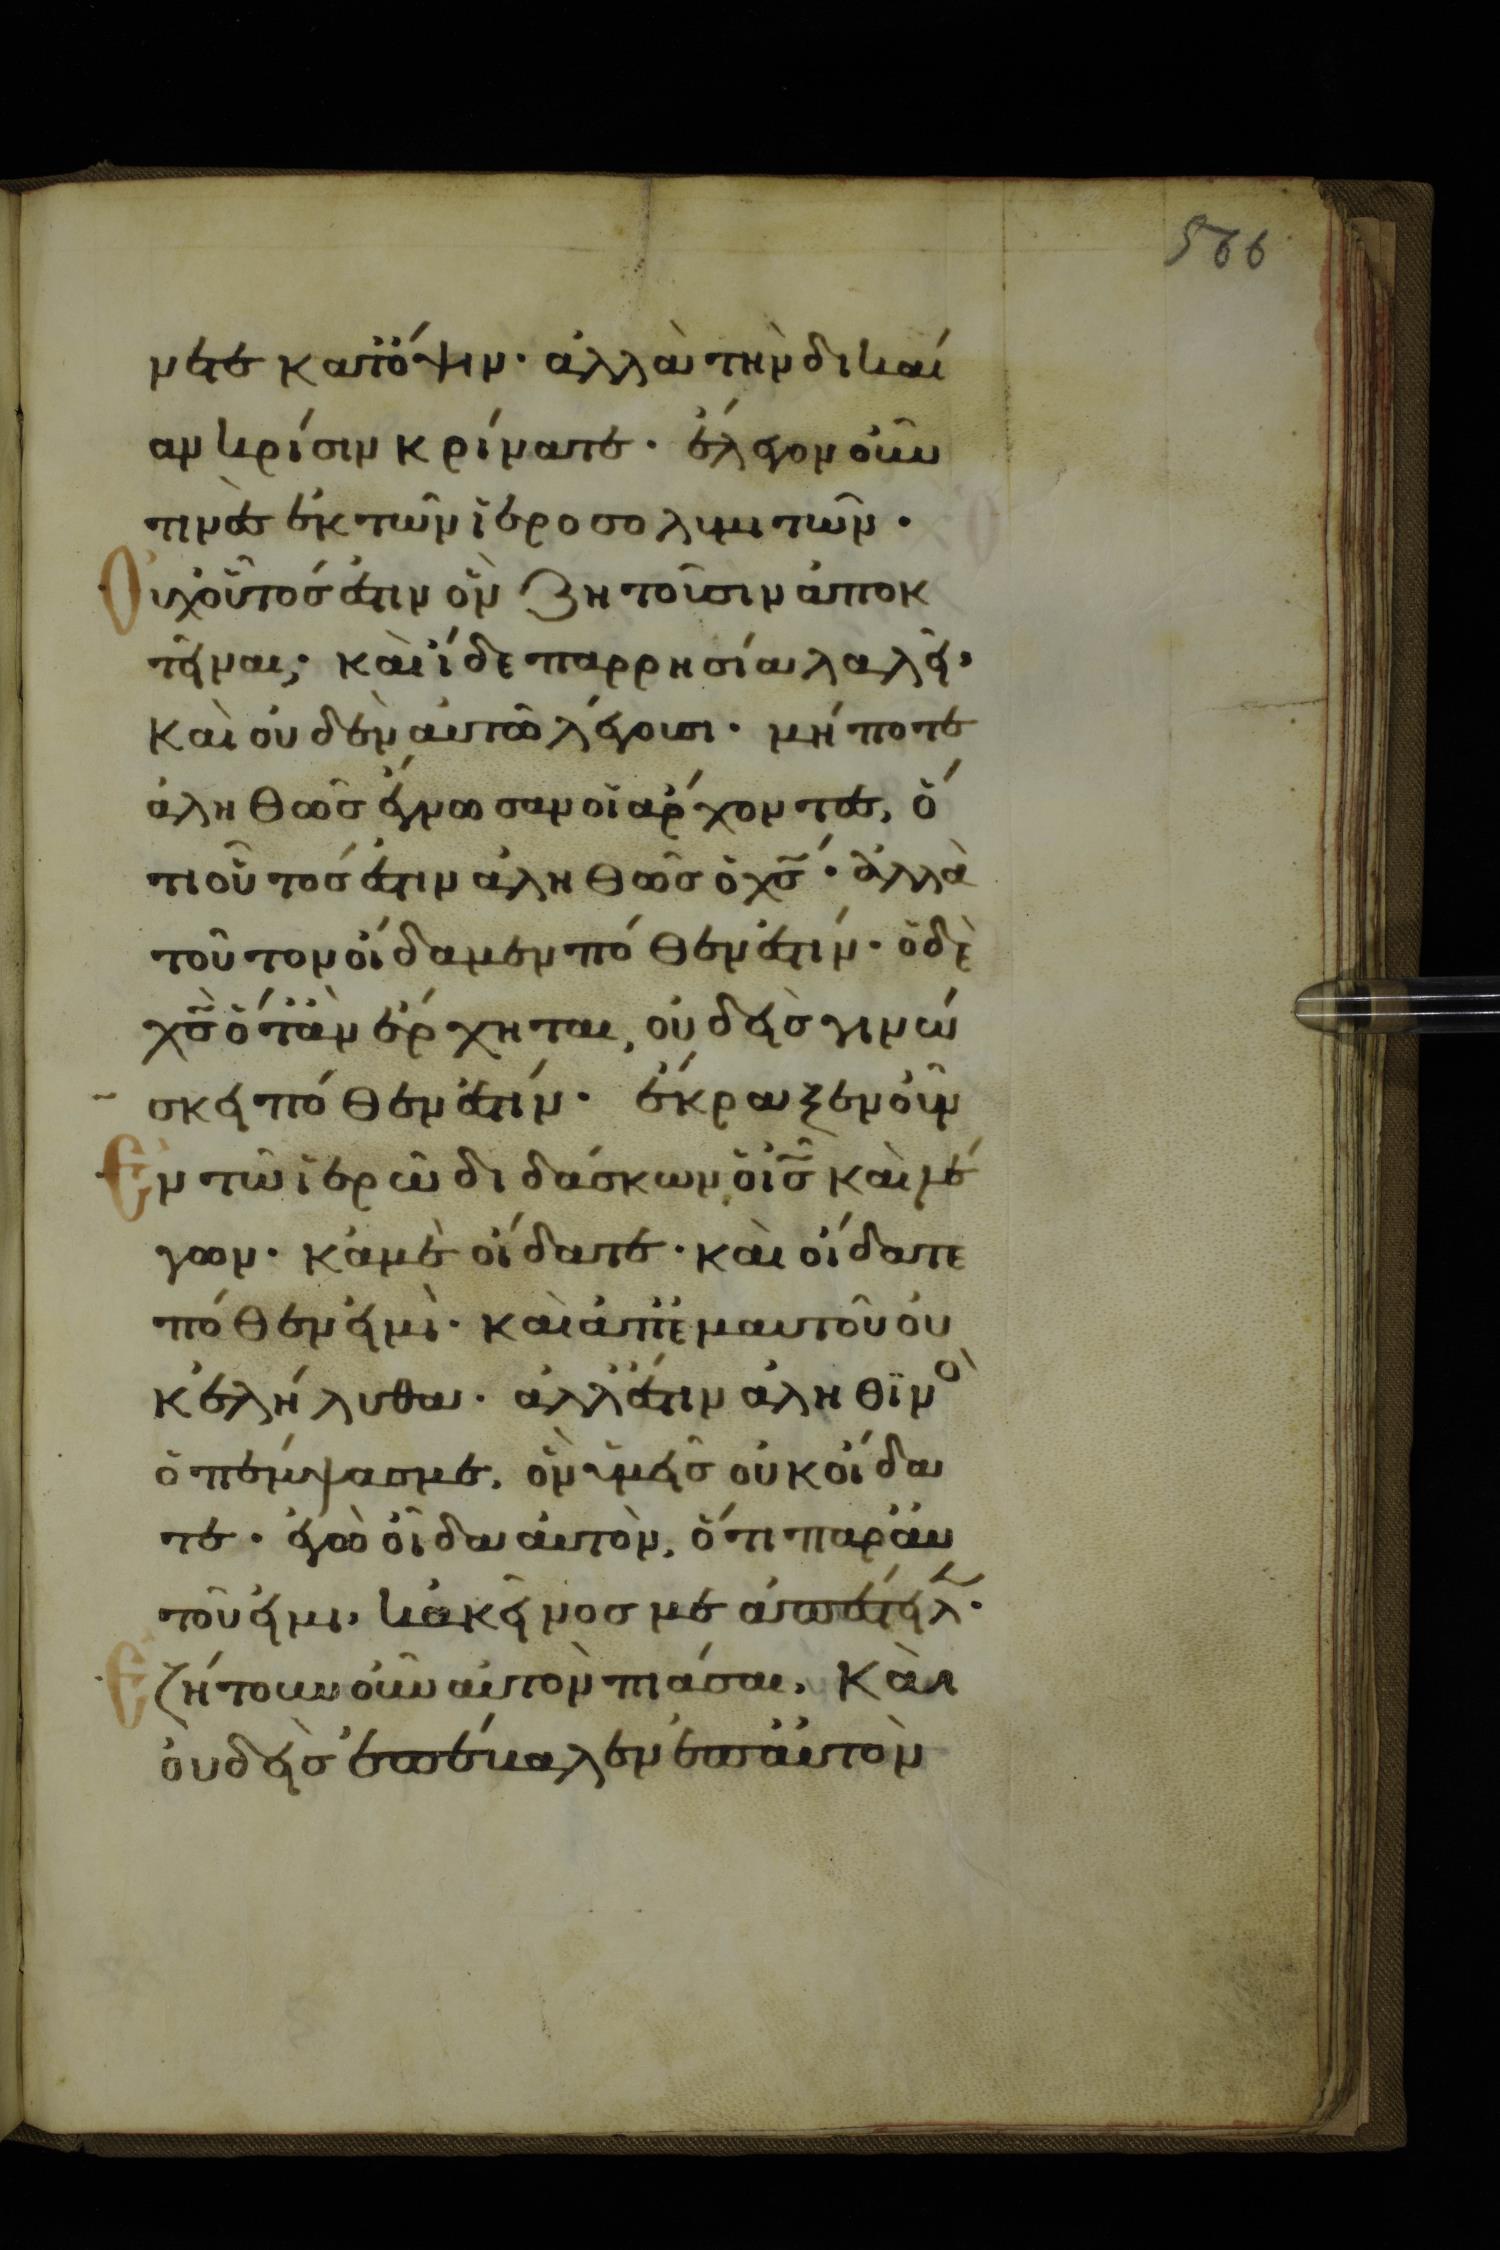 566
νετε κατ' ὄψιν· ἀλλὰ τὴν δικαί
αν κρίσιν κρίνατε· ἔλεγον οὖν
τινὲς ἐκ τῶν ἱεροσολυμιτῶν·
Οὐχ οὗτός ἐστιν ὃν ζητοῦσιν ἀποκ
τεῖναι; καὶ ἴδε παρρησία λαλεῖ,
καὶ οὐδὲν αὐτῶ λέγουσι· μήποτε
ἀληθῶς ἔγνωσαν οἱ ἄρχοντες, ὅ
τι οὗτός ἐστιν ἀληθῶς ὁ χς̄· ἀλλὰ
τοῦτον οἴδαμεν πόθεν ἐστίν· ὁ δὲ
χς̄ ὅταν ἔρχηται, οὐδεὶς γινώ
σκει πόθεν ἐστίν· ἔκραξεν οὖν
Ἐν τῶ ἱερῶ διδάσκων ὁ ις̄ καὶ λέ
γων· κἀμὲ οἴδατε· καὶ οἴδατε
πόθεν εἰμὶ· καὶ ἀπ' ἐμαυτοῦ οὐ
κ ἐλήλυθα· ἀλλ' ἔστιν ἀληθϊνὸ
ὁ πέμψας με, ὃν ὑμεῖς οὐκ οἴδα
τε· ἐγὼ οἶδα αὐτὸν, ὅτι παρ' αὐ
τοῦ εἰμι, κἀκεῖνος με ἀπέστειλ·
Ἐζήτουν οὖν αὐτὸν πιάσαι, καὶ
οὐδεὶς ἐπέβαλεν ἐπ' αὐτὸν